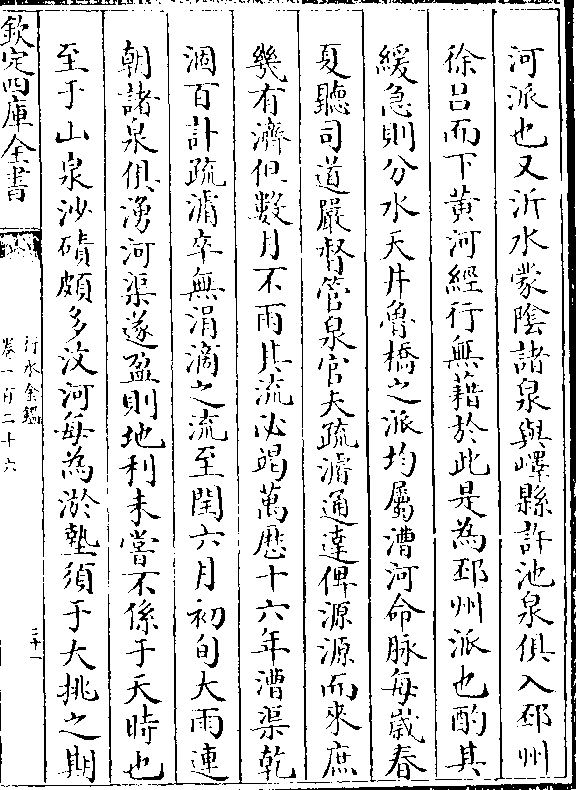 河派也又沂水蒙陰諸泉與嶧縣許池泉俱入邳州
徐呂而下黃河經行無藉於此是為邳州派也酌其
緩急則分水天井魯橋之派均屬漕河命脉每歲春
夏聽司道嚴督管泉官夫疏濬通達俾源源而來庶
幾有濟但數月不雨其流必竭萬厯十六年漕渠乾
涸百計疏濬卒無涓滴之流至閏六月初旬大雨連
朝諸泉俱湧河渠遂盈則地利未嘗不係于天時也
至于山泉沙磧頗多汶河每為淤墊須于大挑之期
欽定四庫全書
行水金鑑
卷一百二十六
三十一